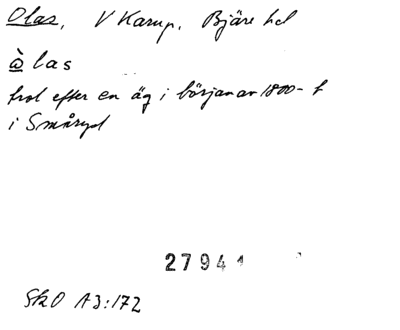 Olas, V Karup, Bjäre hd
òlas
trol efter en äg i början av 1800-t
i Småryd
27941
SkO A3:172